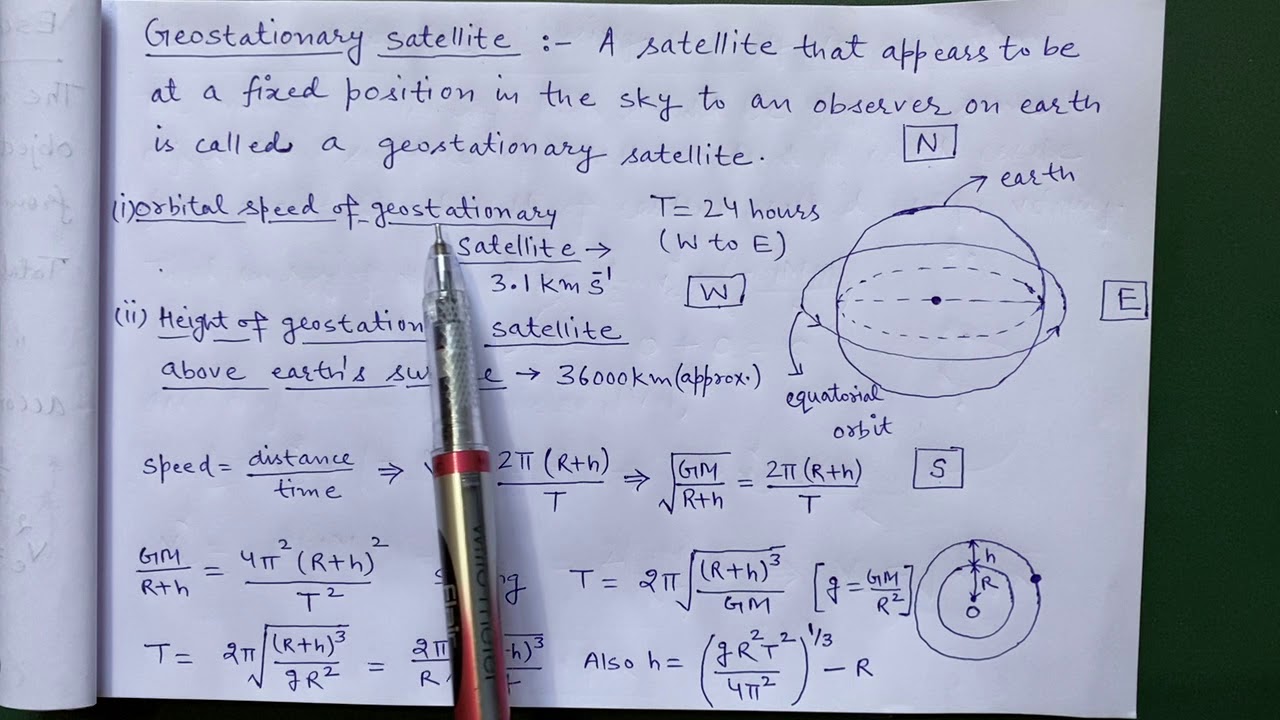 Geostationary satellite :- A satellite that appears to be
at a fixed position in the sky to an observer on earth
is called a geostationary satellite.
N
earth
(i) Orbital speed of geostationary
satellite →
3.1 km s⁻¹
T = 24 hours
(W to E)
W
E
(ii) Height of geostation satellite
above earth's → 36000 km (approx.)
equatorial
orbit
S
speed = distance/time ⇒ 2π(R+h)/T ⇒ √(GM/(R+h)) = 2π(R+h)/T
GM/(R+h) = 4π²(R+h)²/T² T = 2π√((R+h)³/GM) [g = GM/R²]
h
R
O
T = 2π√((R+h)³/gR²) = 2π/R Also h = (gR²T²/4π²)^1/3 − R
Flair